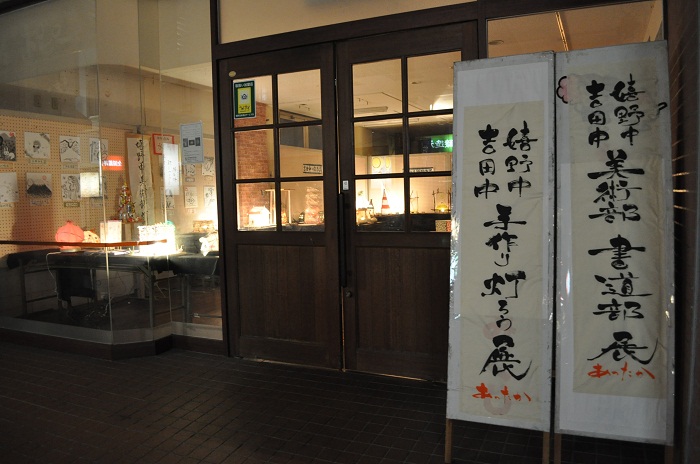 嬉野中
吉田中
美術部
書道部
展
あったか
嬉野中
吉田中
手作り
灯ろう
展
あったか